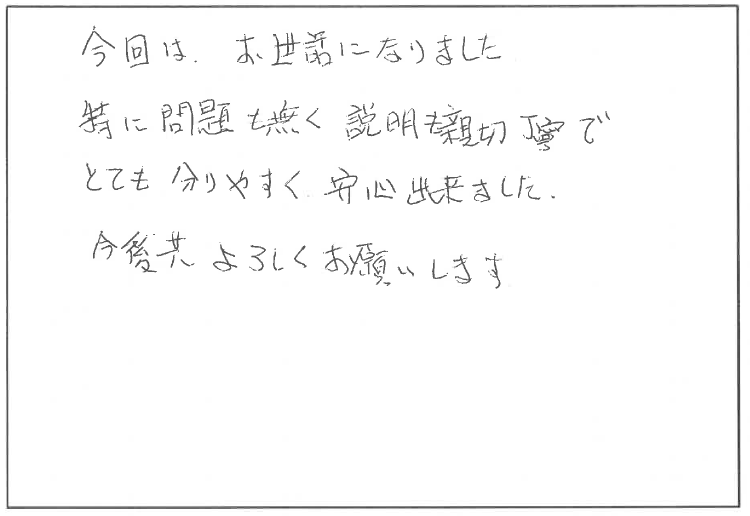 今回は、お世話になりました
特に問題も無く説明も親切丁寧で
とても分りやすく安心出来ました.
今後共よろしくお願いします